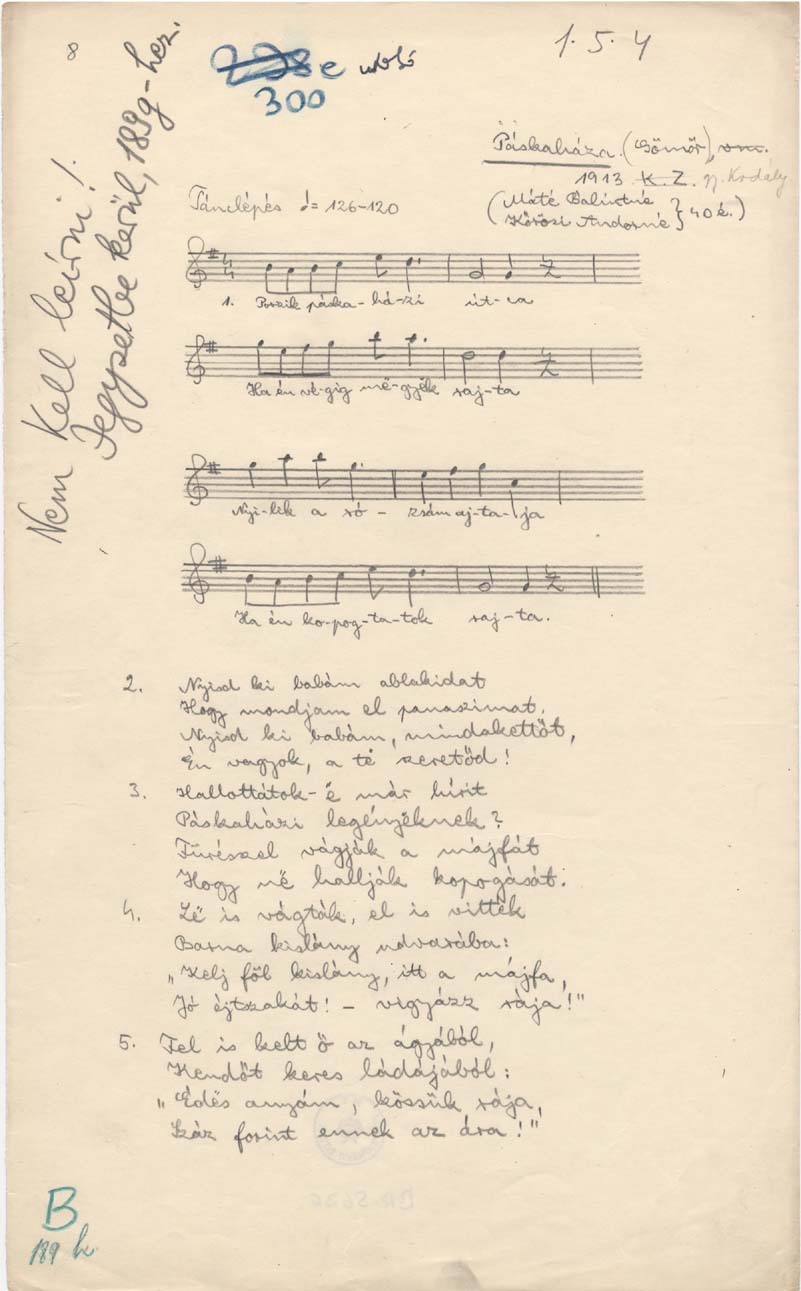 8
1.5.4
298 e utolsó
300
Nem kell leírni!
Jegyzetbe kerül, 189g-hez.
Páskaháza. (Gömör),
1913. K. Z. gy. Kodály
(Máté Bálintné
Kőrösi Andorné } 40 é.)
Tánclépés ♩= 126-120
1. Porzik páska-há-zi út-ca
Ha én vé-gig më-gyëk raj-ta
Nyi-lik a ró- zsám aj-ta-ja
Ha én ko-pog-ta-tok raj-ta.
2. Nyisd ki babám ablakidat
Hogy mondjam el panaszimat.
Nyisd ki babám, mindakettőt,
Én vagyok, a të szeretőd!
3. Hallottátok-ë már hírit
Páskaházi legényëknek?
Fűrészel vágják a májfát
Hogy në hallják kopogását.
4. Lë is vágták, el is vittëk
Barna kislány udvarába:
„Kelj föl kislány, itt a májfa,
Jó éjtszakát! - vigyázz rája!"
5. Fel is kelt ő az ágyából,
Kendőt keres ládájából:
„Édës anyám, kössük rája,
Száz forint ennek az ára!"
B
189 h